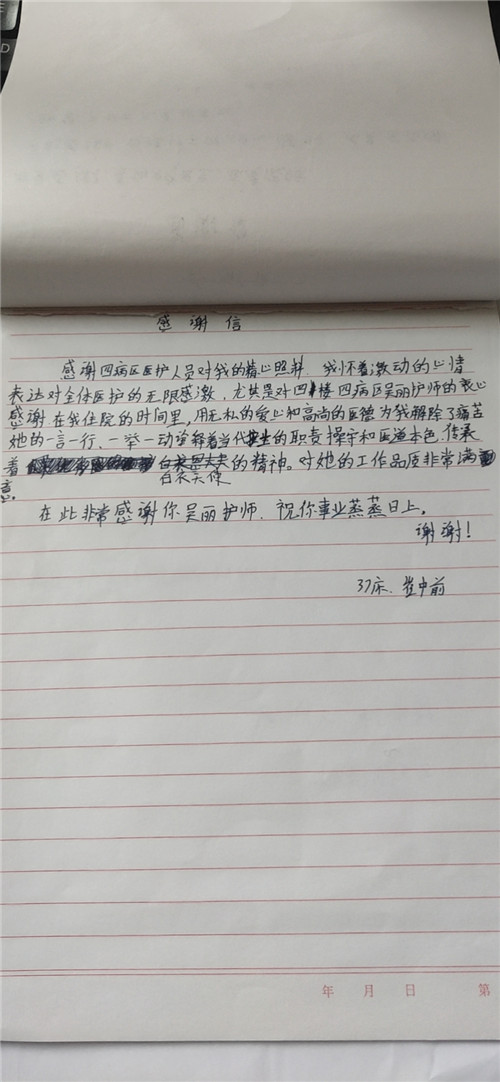 感谢信
感谢四病区医护人员对我的精心照料，我怀着激动的心情
表达对全体医护的无限感激，尤其是对四楼四病区吴丽护师的衷心
感谢在我住院的时间里，用无私的爱心和高尚的医德为我解除了痛苦
她的一言一行、一举一动穿释着当代护士的职责操守和医道本色，传承
着白衣天使的精神。对她的工作品质非常满
意。
在此非常感谢你吴丽护师，祝你事业蒸蒸日上。
谢谢！
37床、崔中前
年 月 日 第